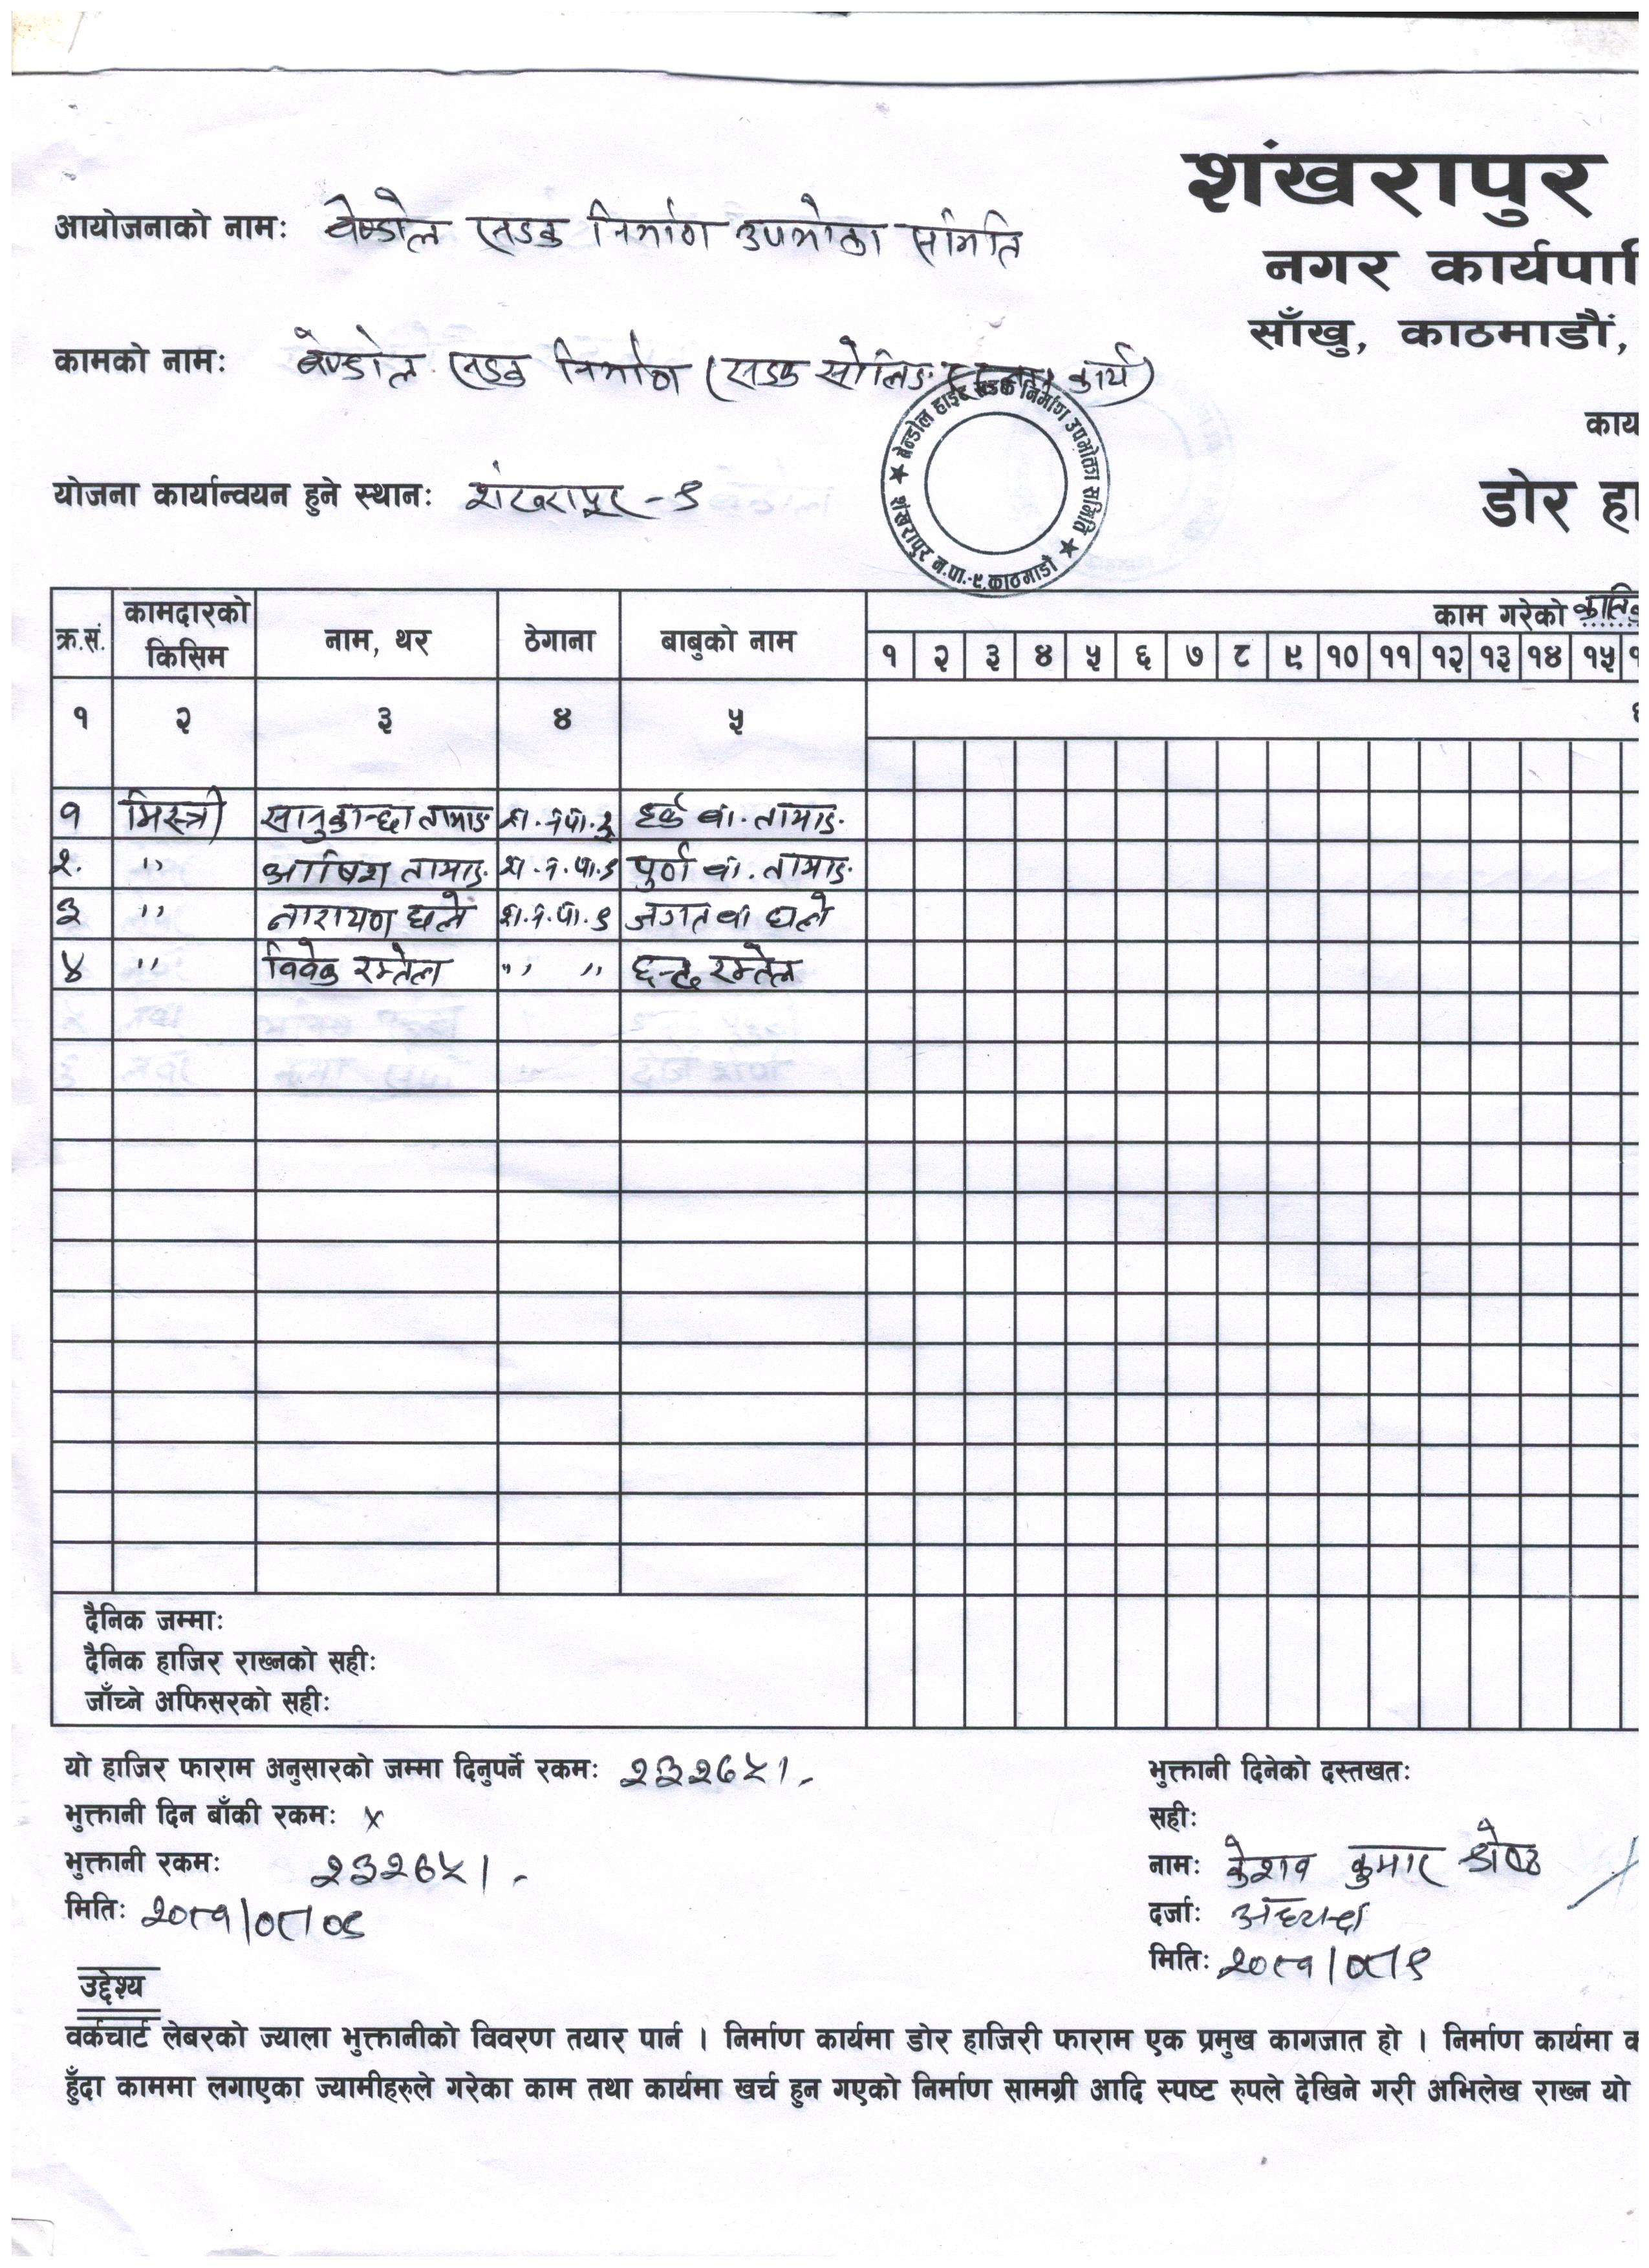 शंखरापुर
आयोजनाको नामः बेण्डोल सडक निर्माण उपभोक्ता समिति
नगर कार्यपा
साँखु, काठमाडौं,
कामको नामः बेण्डोल सडक निर्माण (सडक सोलिङ कार्य)
बेन्डोल हाइट सडक निर्माण उपभोक्ता समिति
शंखरापुर न.पा.-९, काठमाडौं
काय
योजना कार्यान्वयन हुने स्थानः शंखरापुर - ९
डोर हा
क्र.सं. कामदारको किसिम नाम, थर ठेगाना बाबुको नाम काम गरेको कार्तिक
१ २ ३ ४ ५ ६ ७ ८ ९ १० ११ १२ १३ १४ १५
१ २ ३ ४ ५
१ मिस्त्री सानुकान्छा तामाङ श.न.पा. हर्क ब. तामाङ
२. " आशिश तामाङ श.न.पा.९ पुर्ण ब. तामाङ
३ " नारायण घले श.न.पा.९ जगत ब घले
४ " विवेक रम्तेल " " रम्तेल
दैनिक जम्माः
दैनिक हाजिर राख्नको सहीः
जाँच्ने अफिसरको सहीः
यो हाजिर फाराम अनुसारको जम्मा दिनुपर्ने रकमः २३२७५।-
भुक्तानी दिन बाँकी रकमः x
भुक्तानी रकमः २३२७५।-
मितिः २०८१/०८/०९
भुक्तानी दिनेको दस्तखतः
सहीः
नामः केशव कुमार श्रेष्ठ
दर्जाः अध्यक्ष
मितिः २०८१/०८/९
उद्देश्य
वर्कचार्ट लेबरको ज्याला भुक्तानीको विवरण तयार पार्न । निर्माण कार्यमा डोर हाजिरी फाराम एक प्रमुख कागजात हो । निर्माण कार्यमा व
हुँदा काममा लगाएका ज्यामीहरुले गरेका काम तथा कार्यमा खर्च हुन गएको निर्माण सामग्री आदि स्पष्ट रुपले देखिने गरी अभिलेख राख्न यो